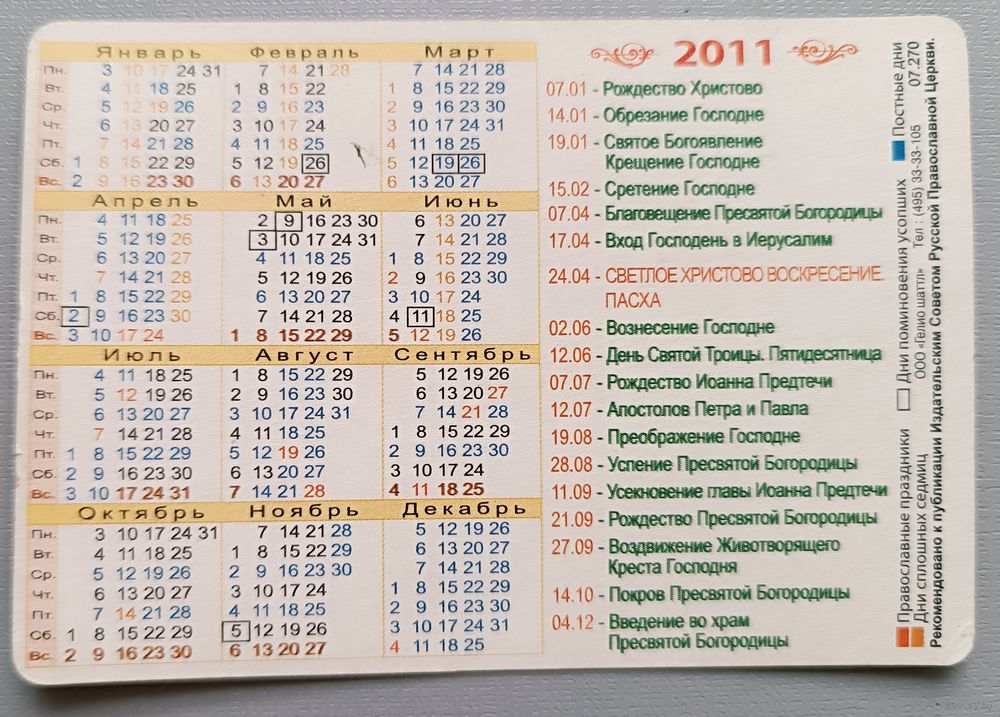 Январь Февраль Март
Пн. 3 10 17 24 31 7 14 21 28 7 14 21 28
Вт. 4 11 18 25 1 8 15 22 1 8 15 22 29
Ср. 5 12 19 26 2 9 16 23 2 9 16 23 30
Чт. 6 13 20 27 3 10 17 24 3 10 17 24 31
Пт. 7 14 21 28 4 11 18 25 4 11 18 25
Сб. 1 8 15 22 29 5 12 19 26 5 12 19 26
Вс. 2 9 16 23 30 6 13 20 27 6 13 20 27
Апрель Май Июнь
Пн. 4 11 18 25 2 9 16 23 30 6 13 20 27
Вт. 5 12 19 26 3 10 17 24 31 7 14 21 28
Ср. 6 13 20 27 4 11 18 25 1 8 15 22 29
Чт. 7 14 21 28 5 12 19 26 2 9 16 23 30
Пт. 1 8 15 22 29 6 13 20 27 3 10 17 24
Сб. 2 9 16 23 30 7 14 21 28 4 11 18 25
Вс. 3 10 17 24 1 8 15 22 29 5 12 19 26
Июль Август Сентябрь
Пн. 4 11 18 25 1 8 15 22 29 5 12 19 26
Вт. 5 12 19 26 2 9 16 23 30 6 13 20 27
Ср. 6 13 20 27 3 10 17 24 31 7 14 21 28
Чт. 7 14 21 28 4 11 18 25 1 8 15 22 29
Пт. 1 8 15 22 29 5 12 19 26 2 9 16 23 30
Сб. 2 9 16 23 30 6 13 20 27 3 10 17 24
Вс. 3 10 17 24 31 7 14 21 28 4 11 18 25
Октябрь Ноябрь Декабрь
Пн. 3 10 17 24 31 7 14 21 28 5 12 19 26
Вт. 4 11 18 25 1 8 15 22 29 6 13 20 27
Ср. 5 12 19 26 2 9 16 23 30 7 14 21 28
Чт. 6 13 20 27 3 10 17 24 1 8 15 22 29
Пт. 7 14 21 28 4 11 18 25 2 9 16 23 30
Сб. 1 8 15 22 29 5 12 19 26 3 10 17 24 31
Вс. 2 9 16 23 30 6 13 20 27 4 11 18 25
2011
07.01 - Рождество Христово
14.01 - Обрезание Господне
19.01 - Святое Богоявление
Крещение Господне
15.02 - Сретение Господне
07.04 - Благовещение Пресвятой Богородицы
17.04 - Вход Господень в Иерусалим
24.04 - СВЕТЛОЕ ХРИСТОВО ВОСКРЕСЕНИЕ.
ПАСХА
02.06 - Вознесение Господне
12.06 - День Святой Троицы. Пятидесятница
07.07 - Рождество Иоанна Предтечи
12.07 - Апостолов Петра и Павла
19.08 - Преображение Господне
28.08 - Успение Пресвятой Богородицы
11.09 - Усекновение главы Иоанна Предтечи
21.09 - Рождество Пресвятой Богородицы
27.09 - Воздвижение Животворящего
Креста Господня
14.10 - Покров Пресвятой Богородицы
04.12 - Введение во храм
Пресвятой Богородицы
Православные праздники Дни поминовения усопших Постные дни
Дни сплошных седмиц ООО «Телио шаттл» Тел : (495) 33-33-105 07.270
Рекомендовано к публикации Издательским Советом Русской Православной Церкви.
www.ay.by